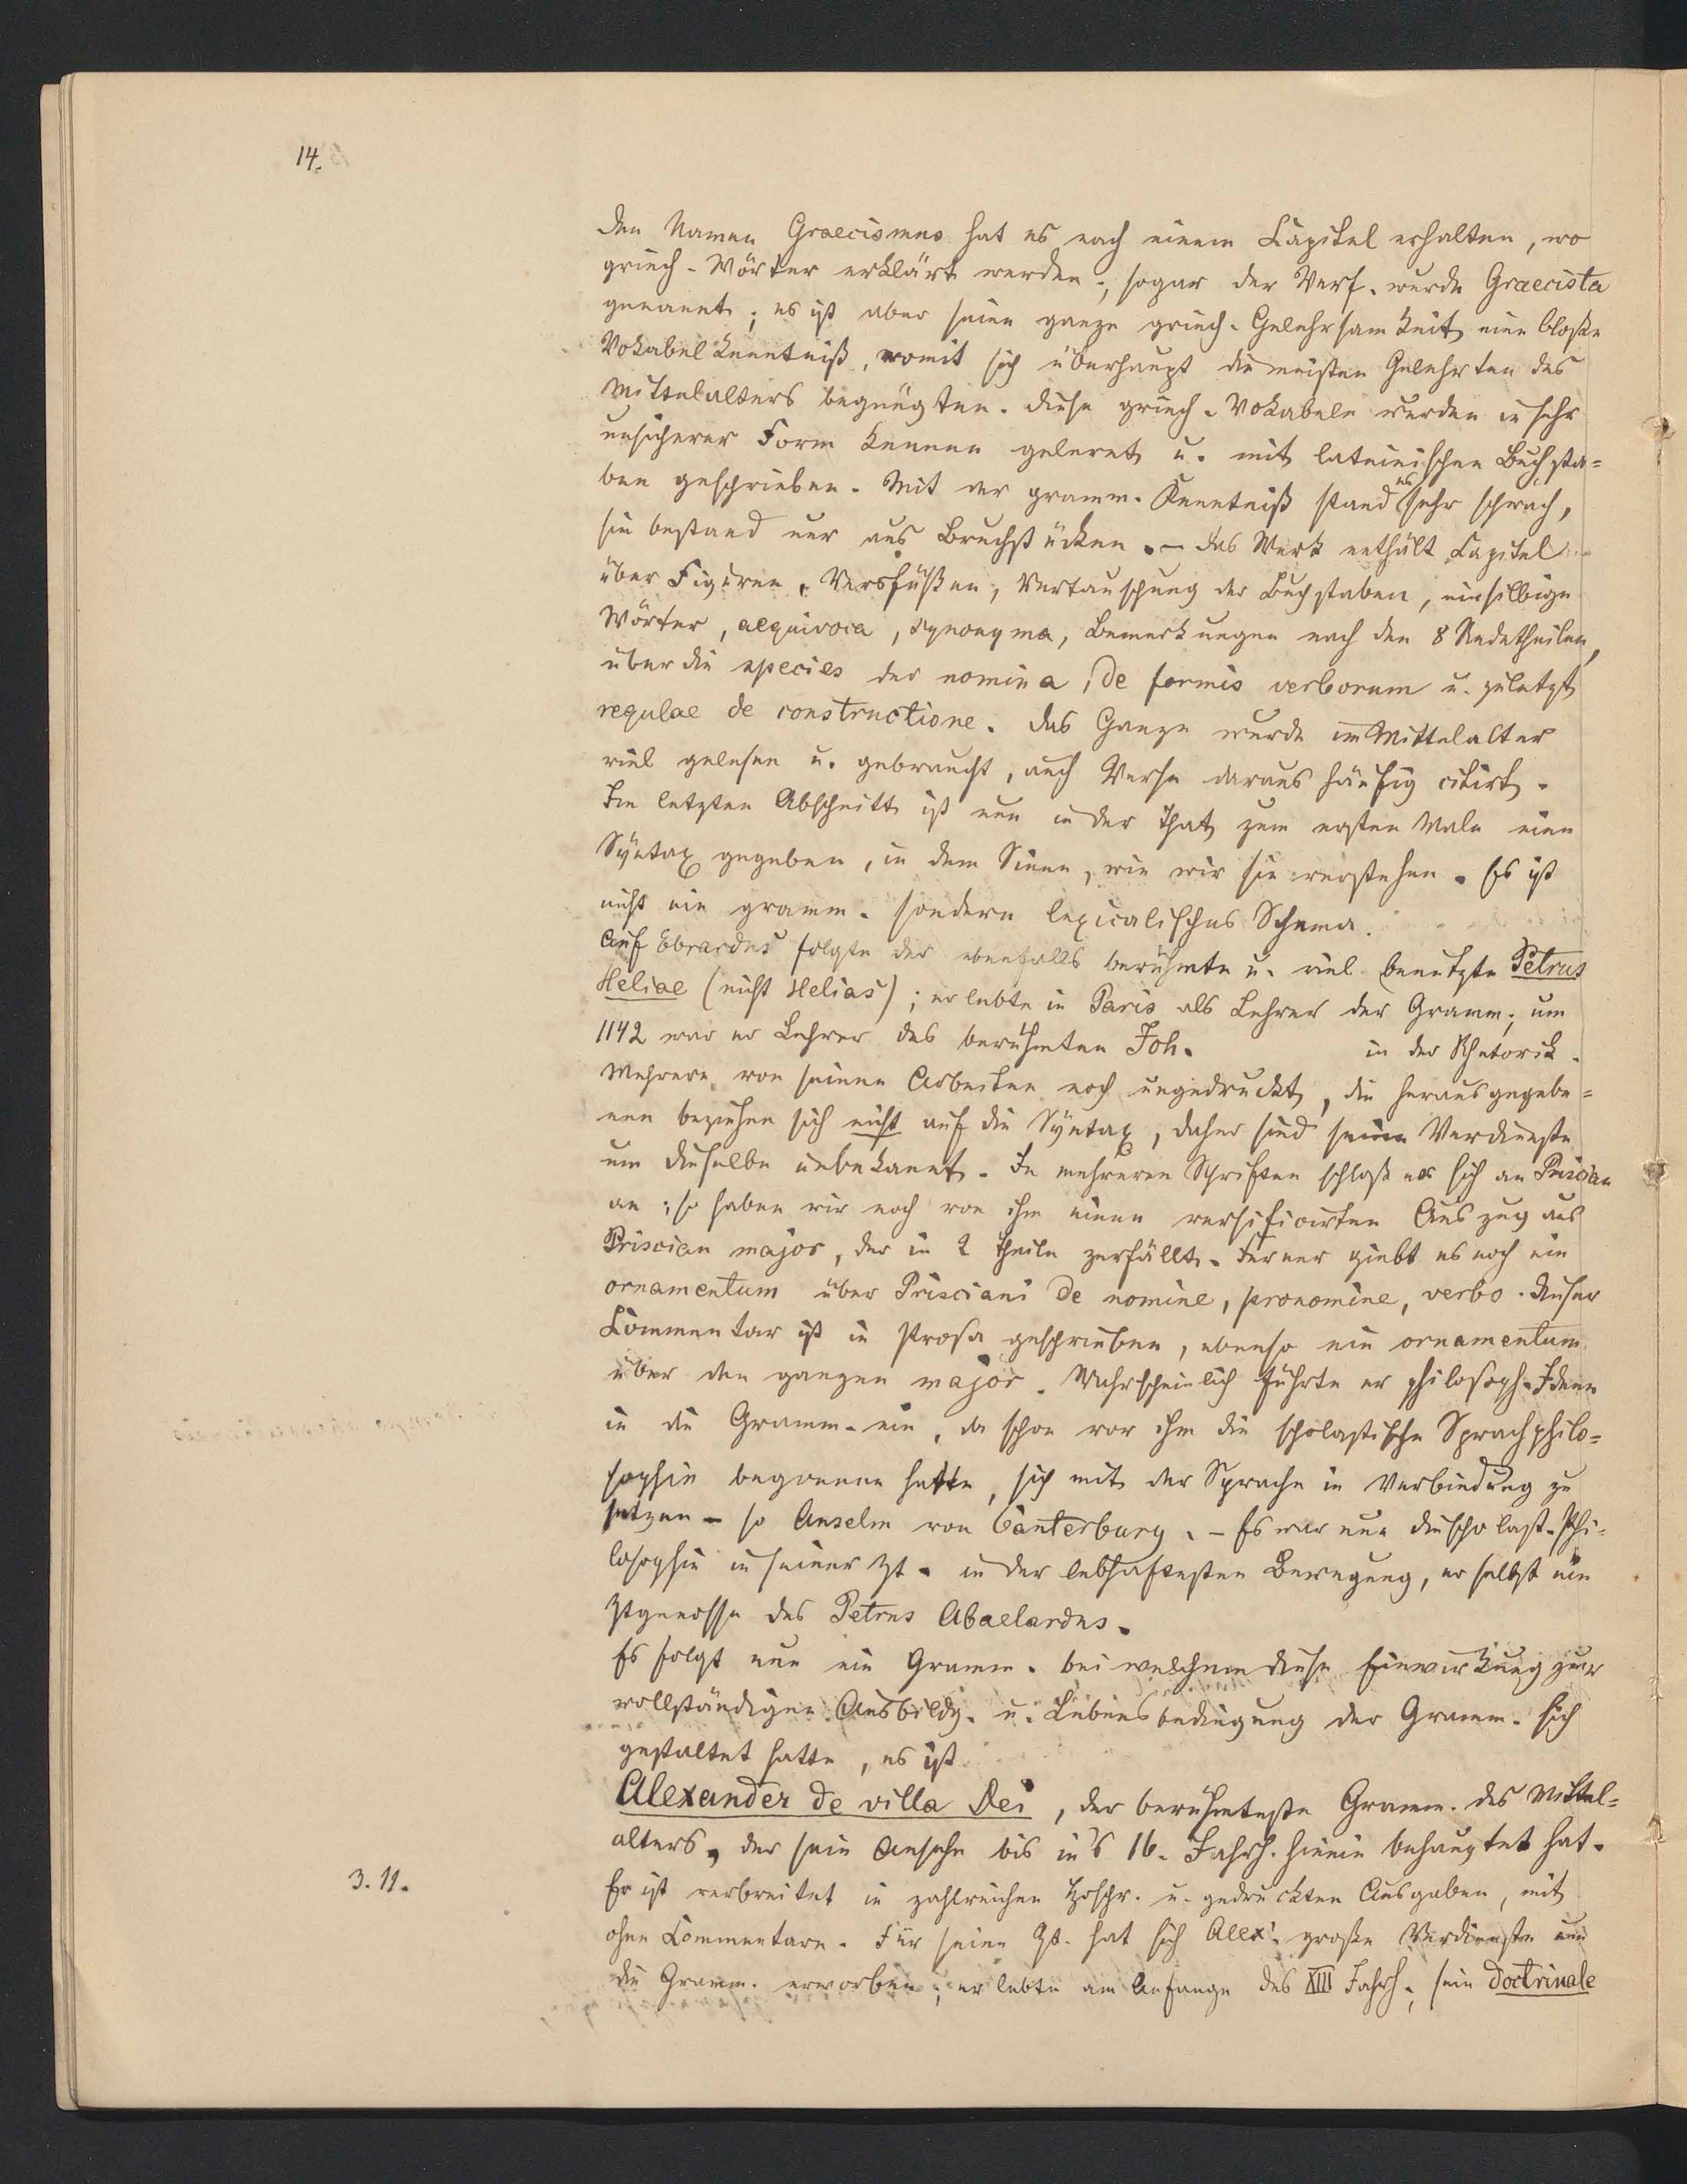 14.
den Namen Graecismus hat es nach einem Capitel erhalten, wo
griech. Wörter erklärt werden; sogar der Verf. wurde Graecista
genannt; es ist aber seine ganze griech. Gelehrsamkeit eine bloße
Vokabelkenntniß, womit sich überhaupt die meisten Gelehrten des
Mittelalters begnügten. Diese griech. Vokabeln wurden in sehr
unsicherer Form kennen gelernt u. mit lateinischen Buchsta=
ben geschrieben. Mit der gramm. Kenntniß stand es sehr schwach,
sie bestand nur aus Bruchstücken. – Das Werk enthält Capitel
über Figuren, Versfüßen, Vertauschung der Buchstaben, einsilbige
Wörter, aequivoca, synonyma, Bemerkungen nach den 8 Redetheilen,
über die species der nomina, de formis verborum u. zuletzt
regulae de constructione. Das Ganze wurde im Mittelalter
viel gelesen u. gebraucht, auch Verse daraus häufig citirt.
Im letzten Abschnitt ist nun in der That zum ersten Male eine
Syntax gegeben, in dem Sinne, wie wir sie verstehen. Es ist
nicht ein gramm. sondern lexicalisches Schema.
Auf Ebrardus folgte der ebenfalls berühmte u. viel benutzte Petrus
Heliae (nicht Helias); er lebte in Paris als Lehrer der Gramm.; um
1142 war er Lehrer des berühmten Joh. in der Rhetorik.
Mehrere von seinen Arbeiten noch ungedruckt, die herausgegebe=
nen beziehen sich nicht auf die Syntax, daher sind seine Verdienste
um dieselbe unbekannt. In mehreren Schriften schloß er sich an Priscian
an; so haben wir noch von ihm einen versificirten Auszug aus
Priscian major, der in 2 Theile zerfällt. Ferner giebt es noch ein
ornamentum über Prisciani de nomine, pronomine, verbo. Dieser
Commentar ist in Prosa geschrieben, ebenso ein ornamentum
über den ganzen major. Wahrscheinlich führte er philosoph. Ideen
in die Gramm. ein, da schon vor ihm die scholastische Sprachphilo=
sophie begonnen hatte, sich mit der Sprache in Verbindung zu
setzen – so Anselm von Canterbury. – Es war nun die scholast. Phi=
losophie in seiner Zt. in der lebhaftesten Bewegung, er selbst ein
Ztgenosse des Petrus Abaelardus.
Es folgt nun ein Gramm. bei welchem diese Einwirkung zur
vollständigen Ausbildg. u. Lebensbedingung der Gramm. sich
gestaltet hatte, es ist
Alexander de villa Dei, der berühmteste Gramm. des Mittel=
alters, der sein Ansehn bis in's 16. Jahrh. hinein behauptet hat.
3. 11.
Er ist verbreitet in zahlreichen Hdschr. u. gedruckten Ausgaben, mit
ohne Commentare. Für seine Zt. hat sich Alex. große Verdienste um
die Gramm. erworben; er lebte am Anfange des XIII Jahrh.; sein Doctrinale